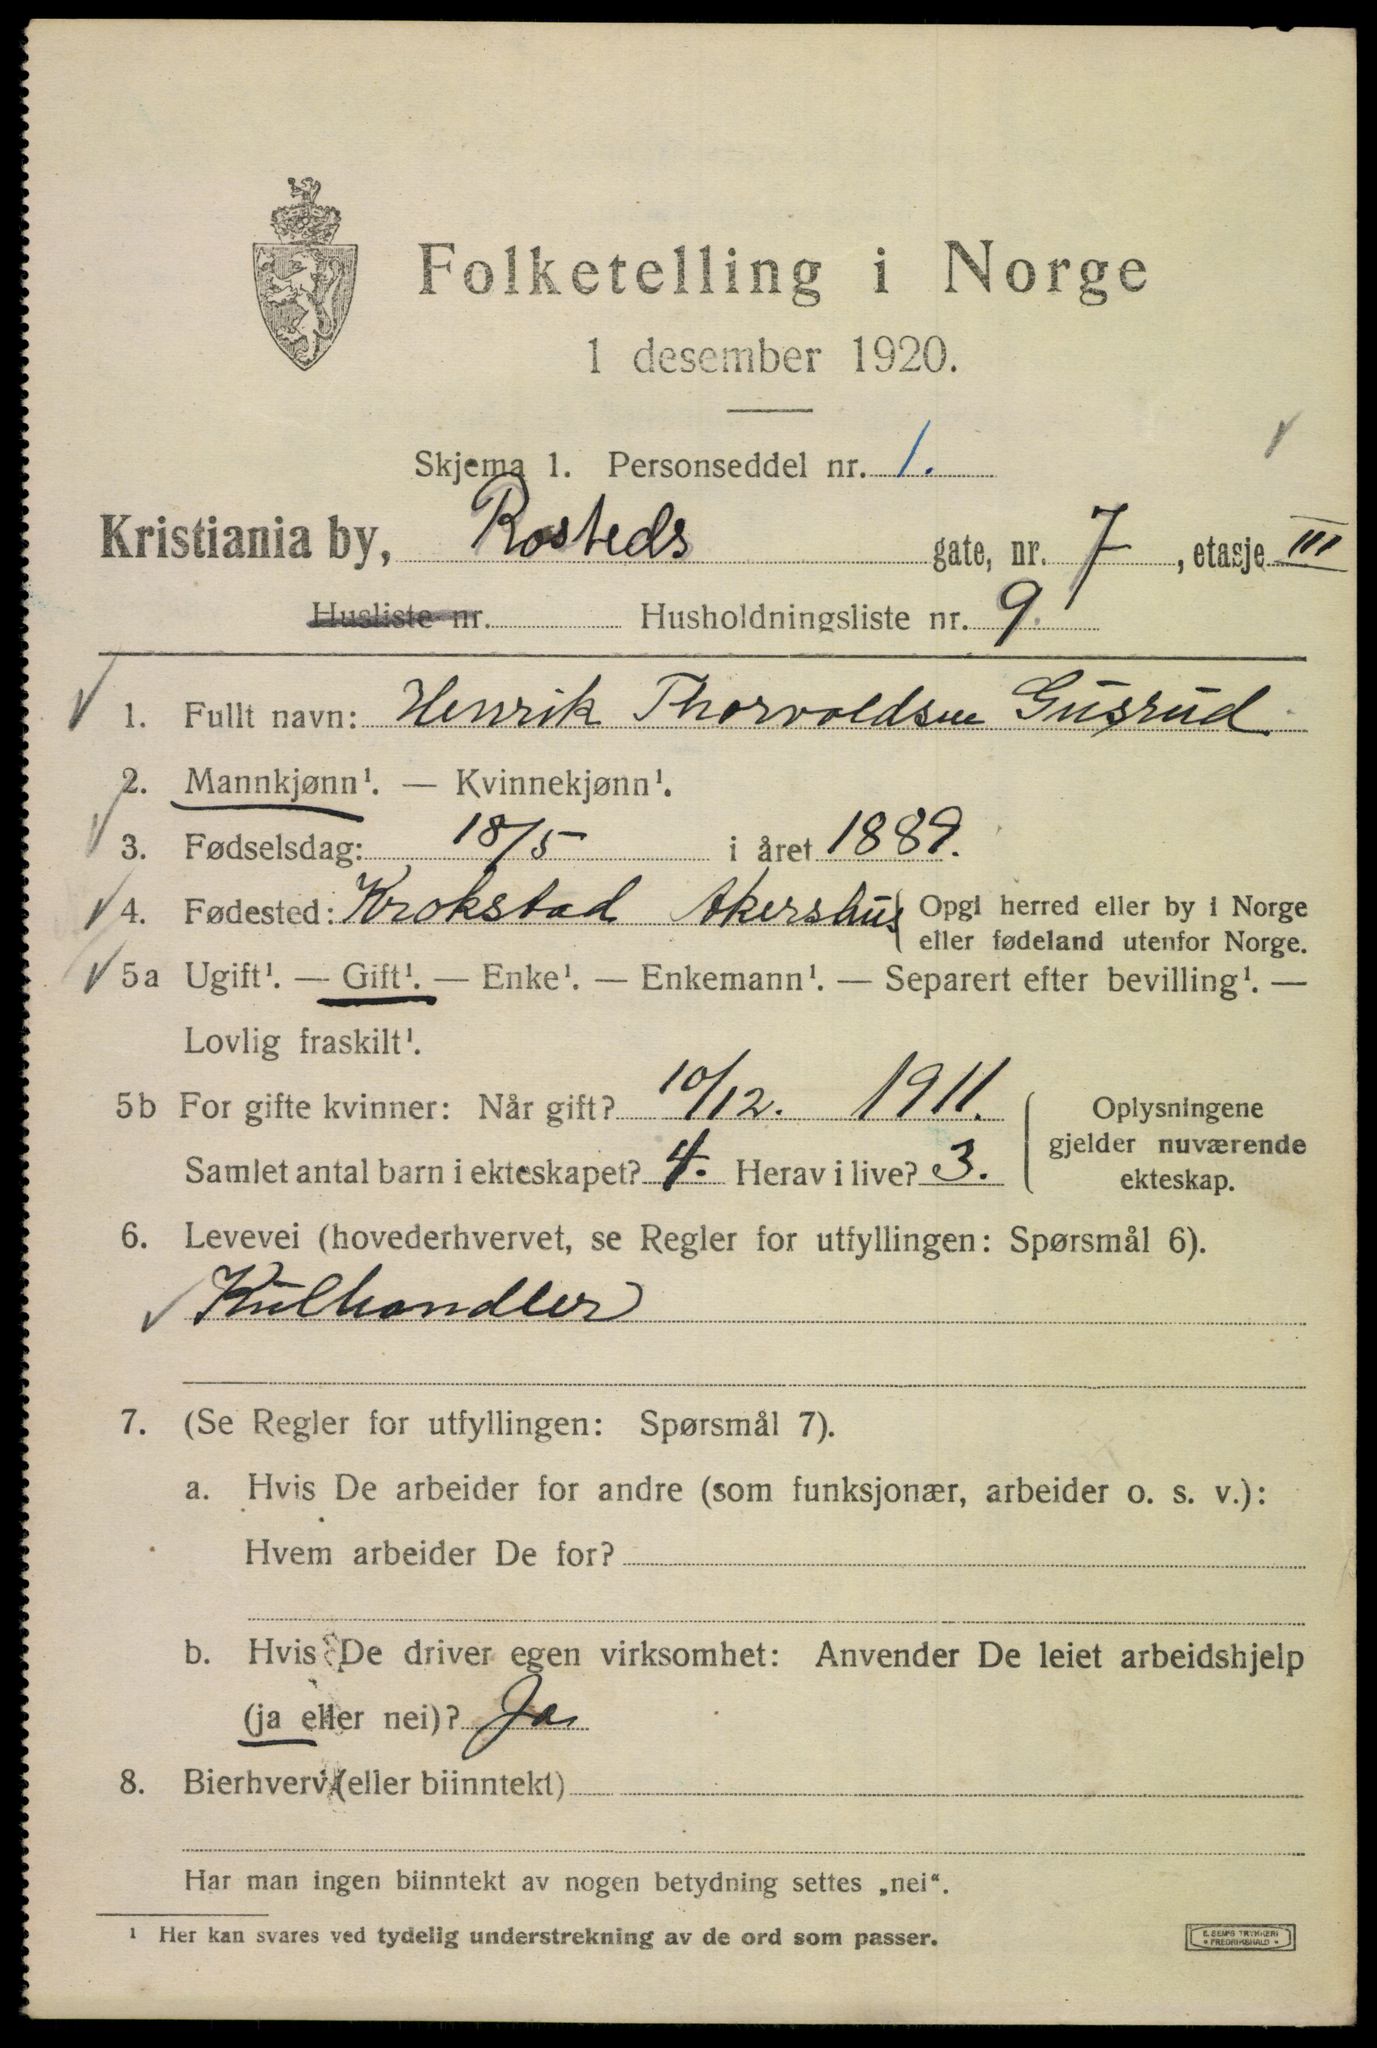 Folketelling i Norge
1 desember 1920.
Skjema 1. Personseddel nr. 1.
Kristiania by, Rosteds gate, nr. 7, etasje III
Husliste nr. Husholdningsliste nr. 9.
1. Fullt navn: Henrik Thorvaldsen Gusrud
2. Mannkjønn¹. — Kvinnekjønn¹.
3. Fødselsdag: 18/5 i året 1889.
4. Fødested: Krokstad Akershus Opgi herred eller by i Norge
eller fødeland utenfor Norge.
5a Ugift¹. — Gift¹. — Enke¹. — Enkemann¹. — Separert efter bevilling¹. —
Lovlig fraskilt¹.
5b For gifte kvinner: Når gift? 10/12. 1911. Oplysningene
gjelder nuværende
Samlet antal barn i ekteskapet? 4. Herav i live? 3. ekteskap.
6. Levevei (hovederhvervet, se Regler for utfyllingen: Spørsmål 6).
Kulhandler
7. (Se Regler for utfyllingen: Spørsmål 7).
a. Hvis De arbeider for andre (som funksjonær, arbeider o. s. v.):
Hvem arbeider De for?
b. Hvis De driver egen virksomhet: Anvender De leiet arbeidshjelp
(ja eller nei)? Ja
8. Bierhverv (eller biinntekt)
Har man ingen biinntekt av nogen betydning settes „nei“.
¹ Her kan svares ved tydelig understrekning av de ord som passer.
E. SEM'S TRYKKERI
* FREDRIKSHALD *